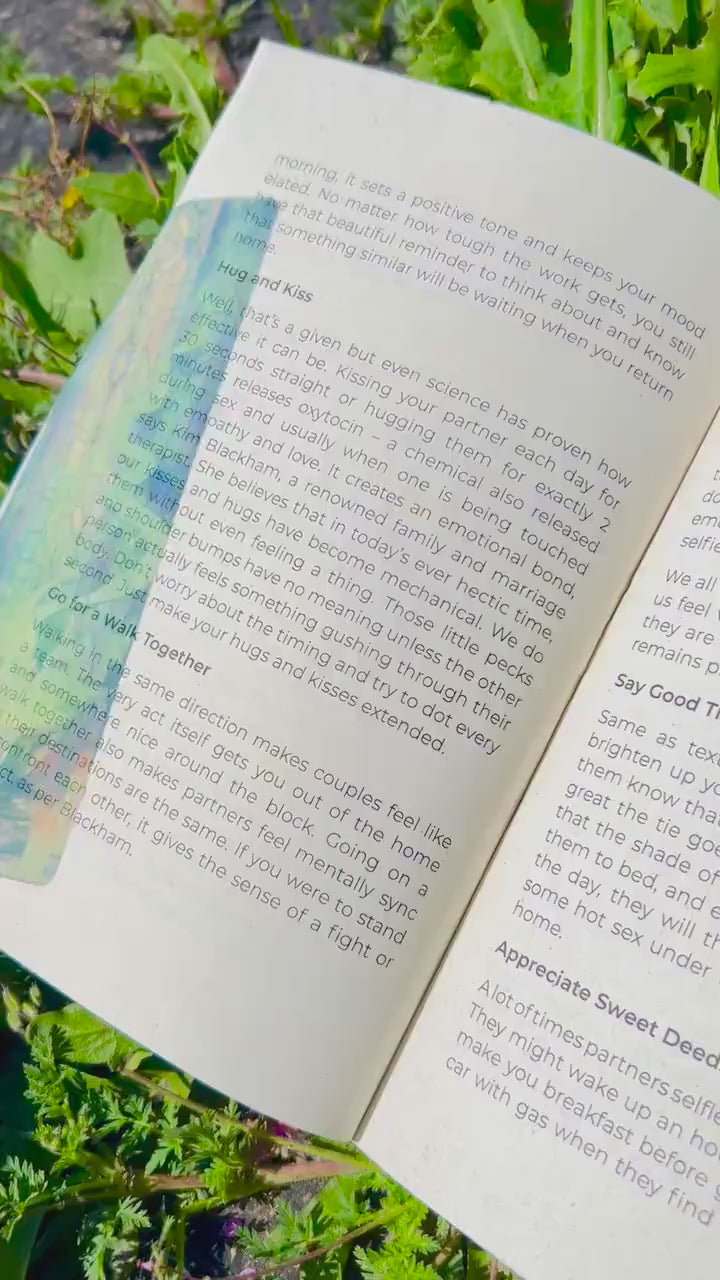 morning, it sets a positive tone and keeps your mood
elated. No matter how tough the work gets, you still
have that beautiful reminder to think about and know
that something similar will be waiting when you return
home.
Hug and Kiss
Well, that's a given but even science has proven how
effective it can be. Kissing your partner each day for
30 seconds straight or hugging them for exactly 2
minutes releases oxytocin – a chemical also released
during sex and usually when one is being touched
with empathy and love. It creates an emotional bond,
says Kim Blackham, a renowned family and marriage
therapist. She believes that in today's ever hectic time,
our kisses and hugs have become mechanical. We do
them without even feeling a thing. Those little pecks
and shoulder bumps have no meaning unless the other
person actually feels something gushing through their
body. Don't worry about the timing and try to dot every
second. Just make your hugs and kisses extended.
Go for a Walk Together
Walking in the same direction makes couples feel like
a team. The very act itself gets you out of the home
and somewhere nice around the block. Going on a
walk together also makes partners feel mentally sync
their destinations are the same. If you were to stand
onfront each other, it gives the sense of a fight or
ct, as per Blackham.
do
em
selfie
We all
us feel
they are
remains p
Say Good T
Same as tex
brighten up yo
them know tha
great the tie goe
that the shade of
them to bed, and e
the day, they will th
some hot sex under
home.
Appreciate Sweet Deed
A lot of times partners selfle
They might wake up an ho
make you breakfast before
car with gas when they find